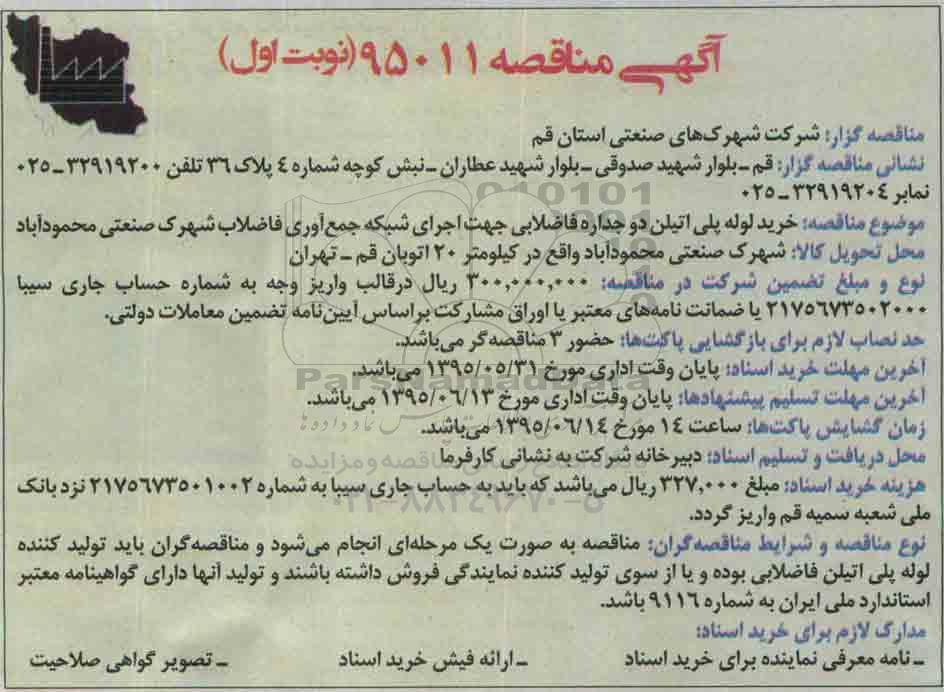 آگهی مناقصه ۹۵۰۱۱ (نوبت اول)
مناقصه گزار: شرکت شهرک‌های صنعتی استان قم
نشانی مناقصه گزار: قم ـ بلوار شهید صدوقی ـ بلوار شهید عطاران ـ نبش کوچه شماره ٤ پلاک ۳٦ تلفن ۳۲۹۱۹۲۰۰ ـ ۰۲۵
نمابر ۳۲۹۱۹۲۰٤ ـ ۰۲۵
موضوع مناقصه: خرید لوله پلی اتیلن دو جداره فاضلابی جهت اجرای شبکه جمع‌آوری فاضلاب شهرک صنعتی محمودآباد
محل تحویل کالا: شهرک صنعتی محمودآباد واقع در کیلومتر ۲۰ اتوبان قم ـ تهران
نوع و مبلغ تضمین شرکت در مناقصه: ۳۰۰,۰۰۰,۰۰۰ ریال درقالب واریز وجه به شماره حساب جاری سیبا
۲۱۷۵٦۷۳۵۰۲۰۰۰ یا ضمانت نامه‌های معتبر یا اوراق مشارکت براساس آیین‌نامه تضمین معاملات دولتی.
حد نصاب لازم برای بازگشایی پاکت‌ها: حضور ۳ مناقصه‌گر می‌باشد.
آخرین مهلت خرید اسناد: پایان وقت اداری مورخ ۱۳۹۵/۰۵/۳۱ می‌باشد.
آخرین مهلت تسلیم پیشنهادها: پایان وقت اداری مورخ ۱۳۹۵/۰٦/۱۳ می‌باشد.
زمان گشایش پاکت‌ها: ساعت ۱٤ مورخ ۱۳۹۵/۰٦/۱٤ می‌باشد.
محل دریافت و تسلیم اسناد: دبیرخانه شرکت به نشانی کارفرما
هزینه خرید اسناد: مبلغ ۳۲۷,۰۰۰ ریال می‌باشد که باید به حساب جاری سیبا به شماره ۲۱۷۵٦۷۳۵۰۱۰۰۲ نزد بانک
ملی شعبه سمیه قم واریز گردد.
نوع مناقصه و شرایط مناقصه‌گران: مناقصه به صورت یک مرحله‌ای انجام می‌شود و مناقصه‌گران باید تولید کننده
لوله پلی اتیلن فاضلابی بوده و یا از سوی تولید کننده نمایندگی فروش داشته باشند و تولید آنها دارای گواهینامه معتبر
استاندارد ملی ایران به شماره ۹۱۱٦ باشد.
مدارک لازم برای خرید اسناد:
ـ نامه معرفی نماینده برای خرید اسناد ـ ارائه فیش خرید اسناد ـ تصویر گواهی صلاحیت